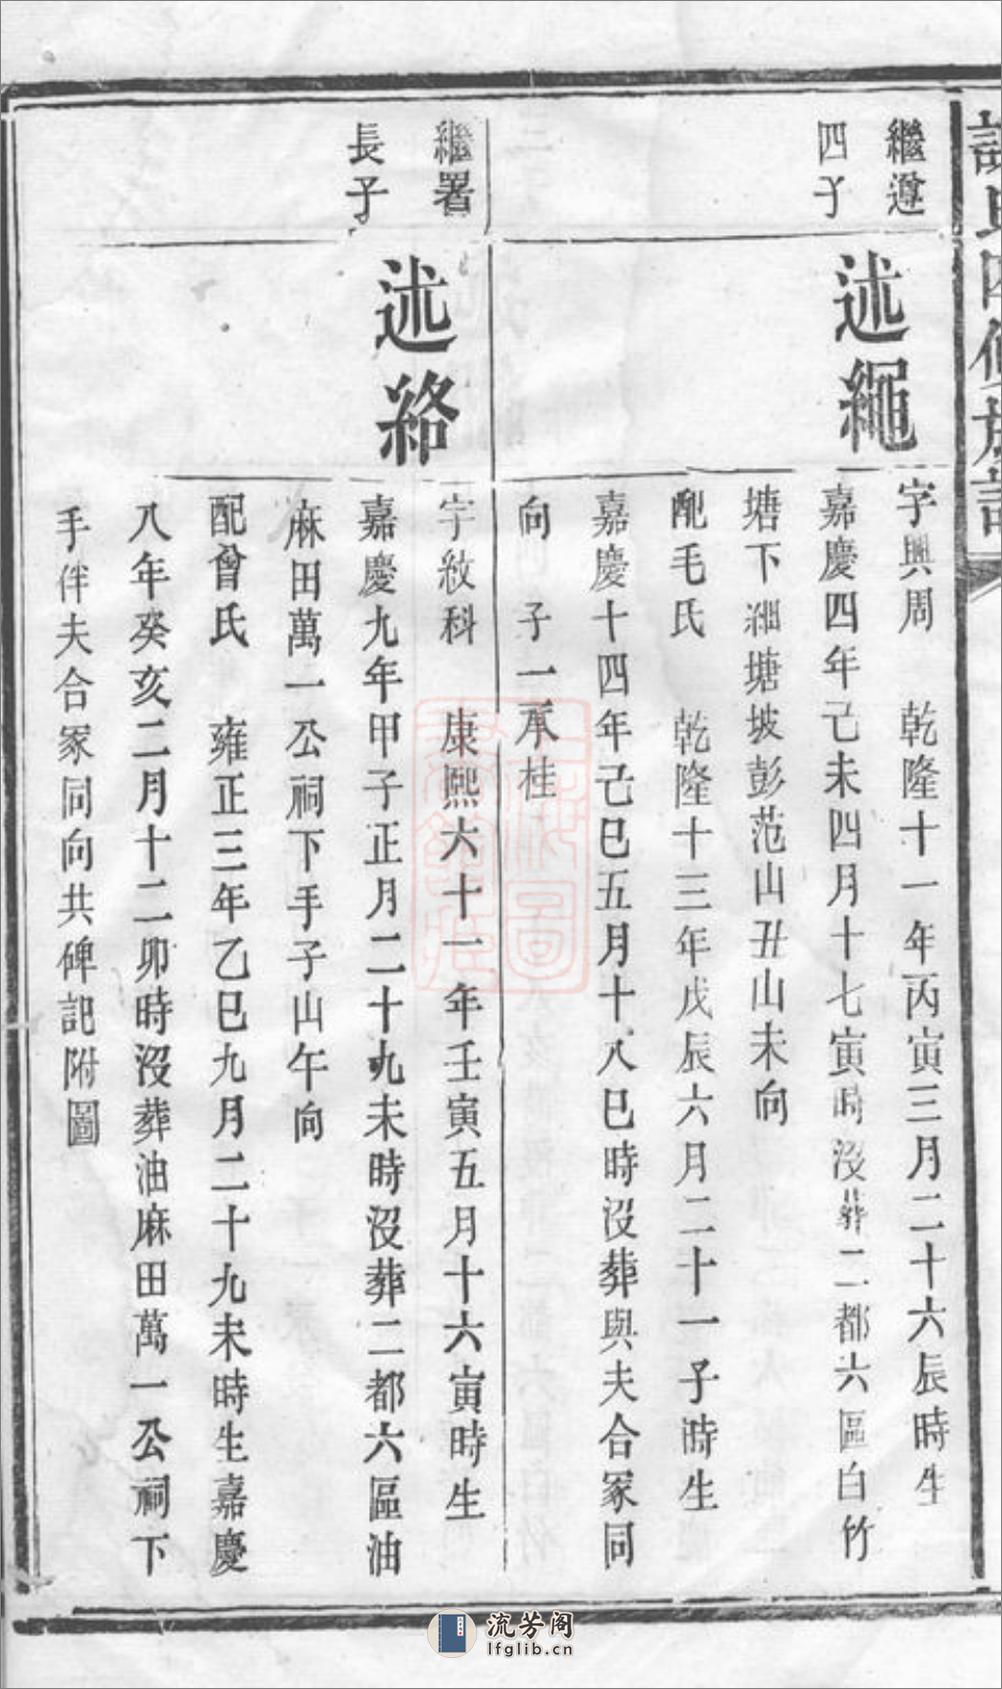 氏四修族譜
繼遵
四子
述繩
字興周　乾隆十一年丙寅三月二十六辰時生
嘉慶四年己未四月十七寅時沒葬二都六區白竹
塘下細塘坡彭范山丑山未向
配毛氏　乾隆十三年戊辰六月二十一子時生
嘉慶十四年己巳五月十八巳時沒葬與夫合冢同
向　子一承桂
繼署
長子
述絡
字紋科　康熙六十一年壬寅五月十六寅時生
嘉慶九年甲子正月二十九未時沒葬二都六區油
麻田萬一公祠下手子山午向
配曾氏　雍正三年乙巳九月二十九未時生嘉慶
八年癸亥二月十二卯時沒葬油麻田萬一公祠下
手伴夫合冢同向共碑記附圖
流芳阁
lfglib.cn